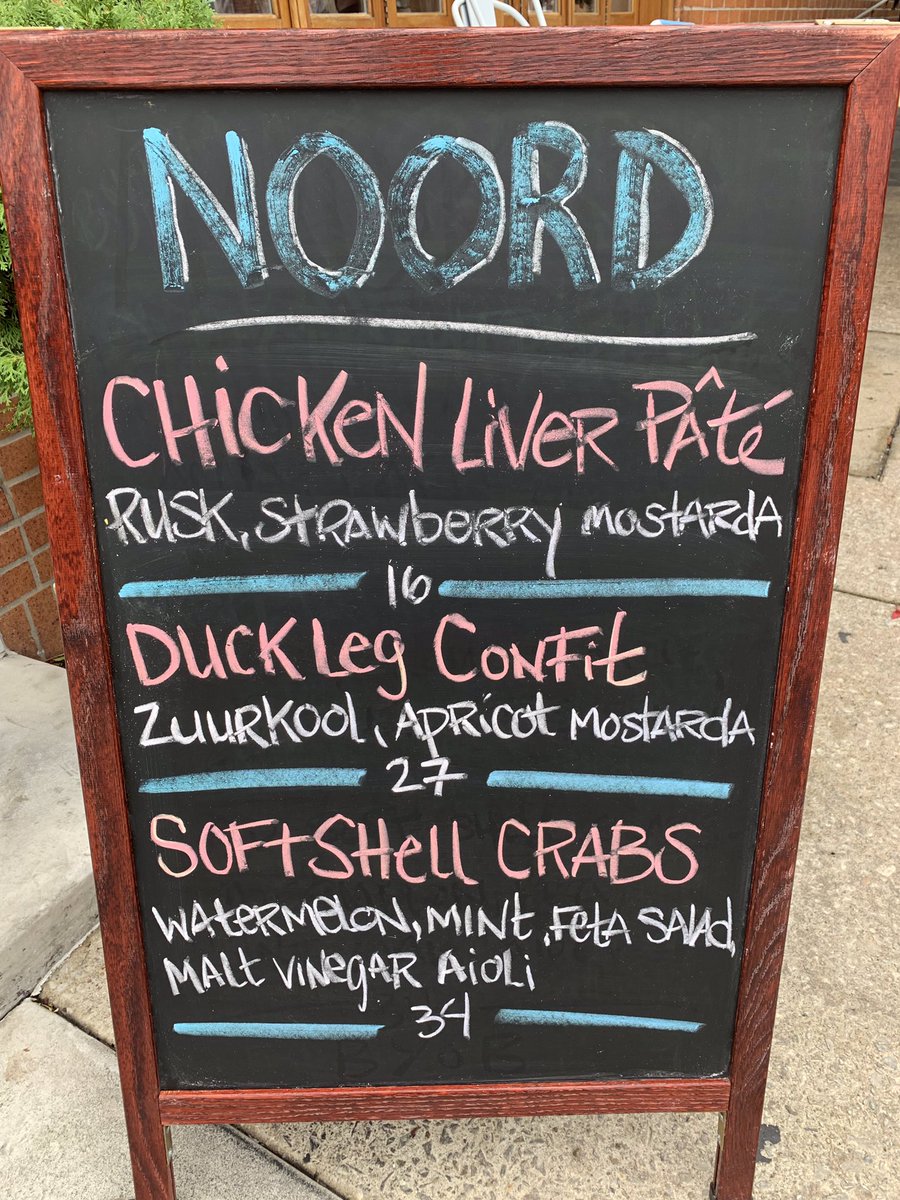 NOORD
CHicKen Liver Pâté
RUSK, Strawberry Mostarda
16
DUCK Leg Confit
Zuurkool, Apricot Mostarda
27
SOFtSHell CRABS
Watermelon, Mint, Feta Salad,
Malt Vinegar Aioli
34